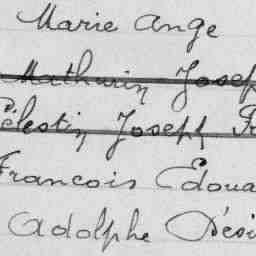 Marie Ange
Mathurin Josep
Célestin Joseph Fr
Francois Edoua
Adolphe Dési